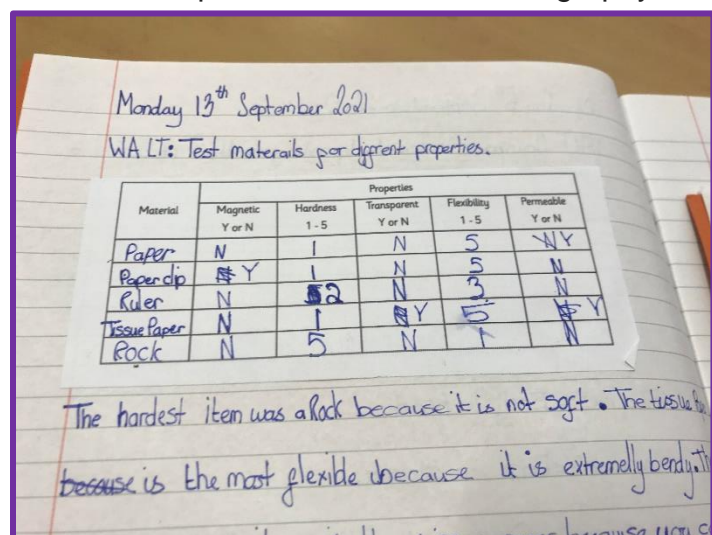 Monday 13th September 2021
WALT: Test materails for diffrent properties.
Properties
Material Magnetic Y or N Hardness 1 - 5 Transparent Y or N Flexibility 1 - 5 Permeable Y or N
Paper N 1 N 5 N Y
Paper clip N Y 1 N 5 N
Ruler N 5 2 N 3 N
Tissue Paper N 1 N Y 5 N Y
Rock N 5 N 1 N
The hardest item was a Rock because it is not soft. The tissue
because is the most flexible because it is extremelly bendy.
because you